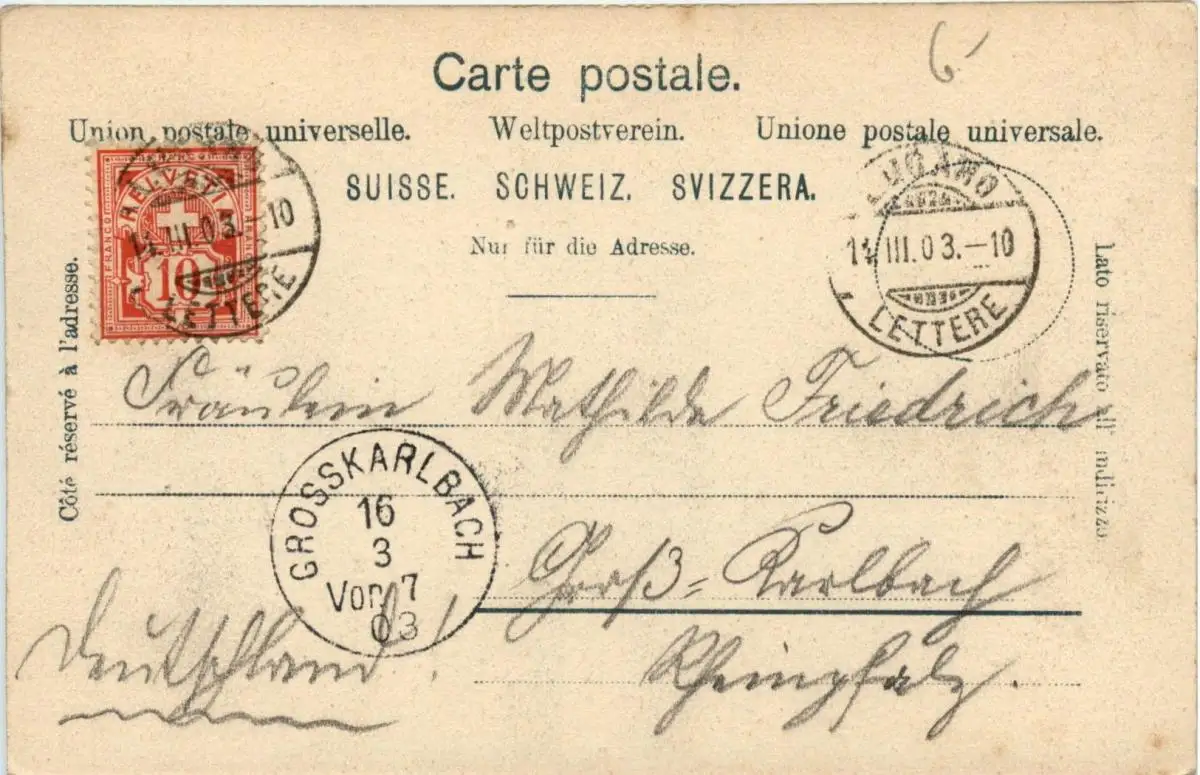 6-
Carte postale.
Union postale universelle. Weltpostverein. Unione postale universale.
SUISSE. SCHWEIZ. SVIZZERA.
Nur für die Adresse.
Côté réservé à l'adresse.
Lato riservato all' indirizzo
HELVETIA
FRANCO
10
14.III.03.-10
LETTERE
LUGANO
14.III.03.-10
LETTERE
Fräulein Mathilde Friedrich
GROSSKARLBACH
16
3
Vor. 7
03
Groß-Karlbach
Rheinpfalz.
Deutschland!